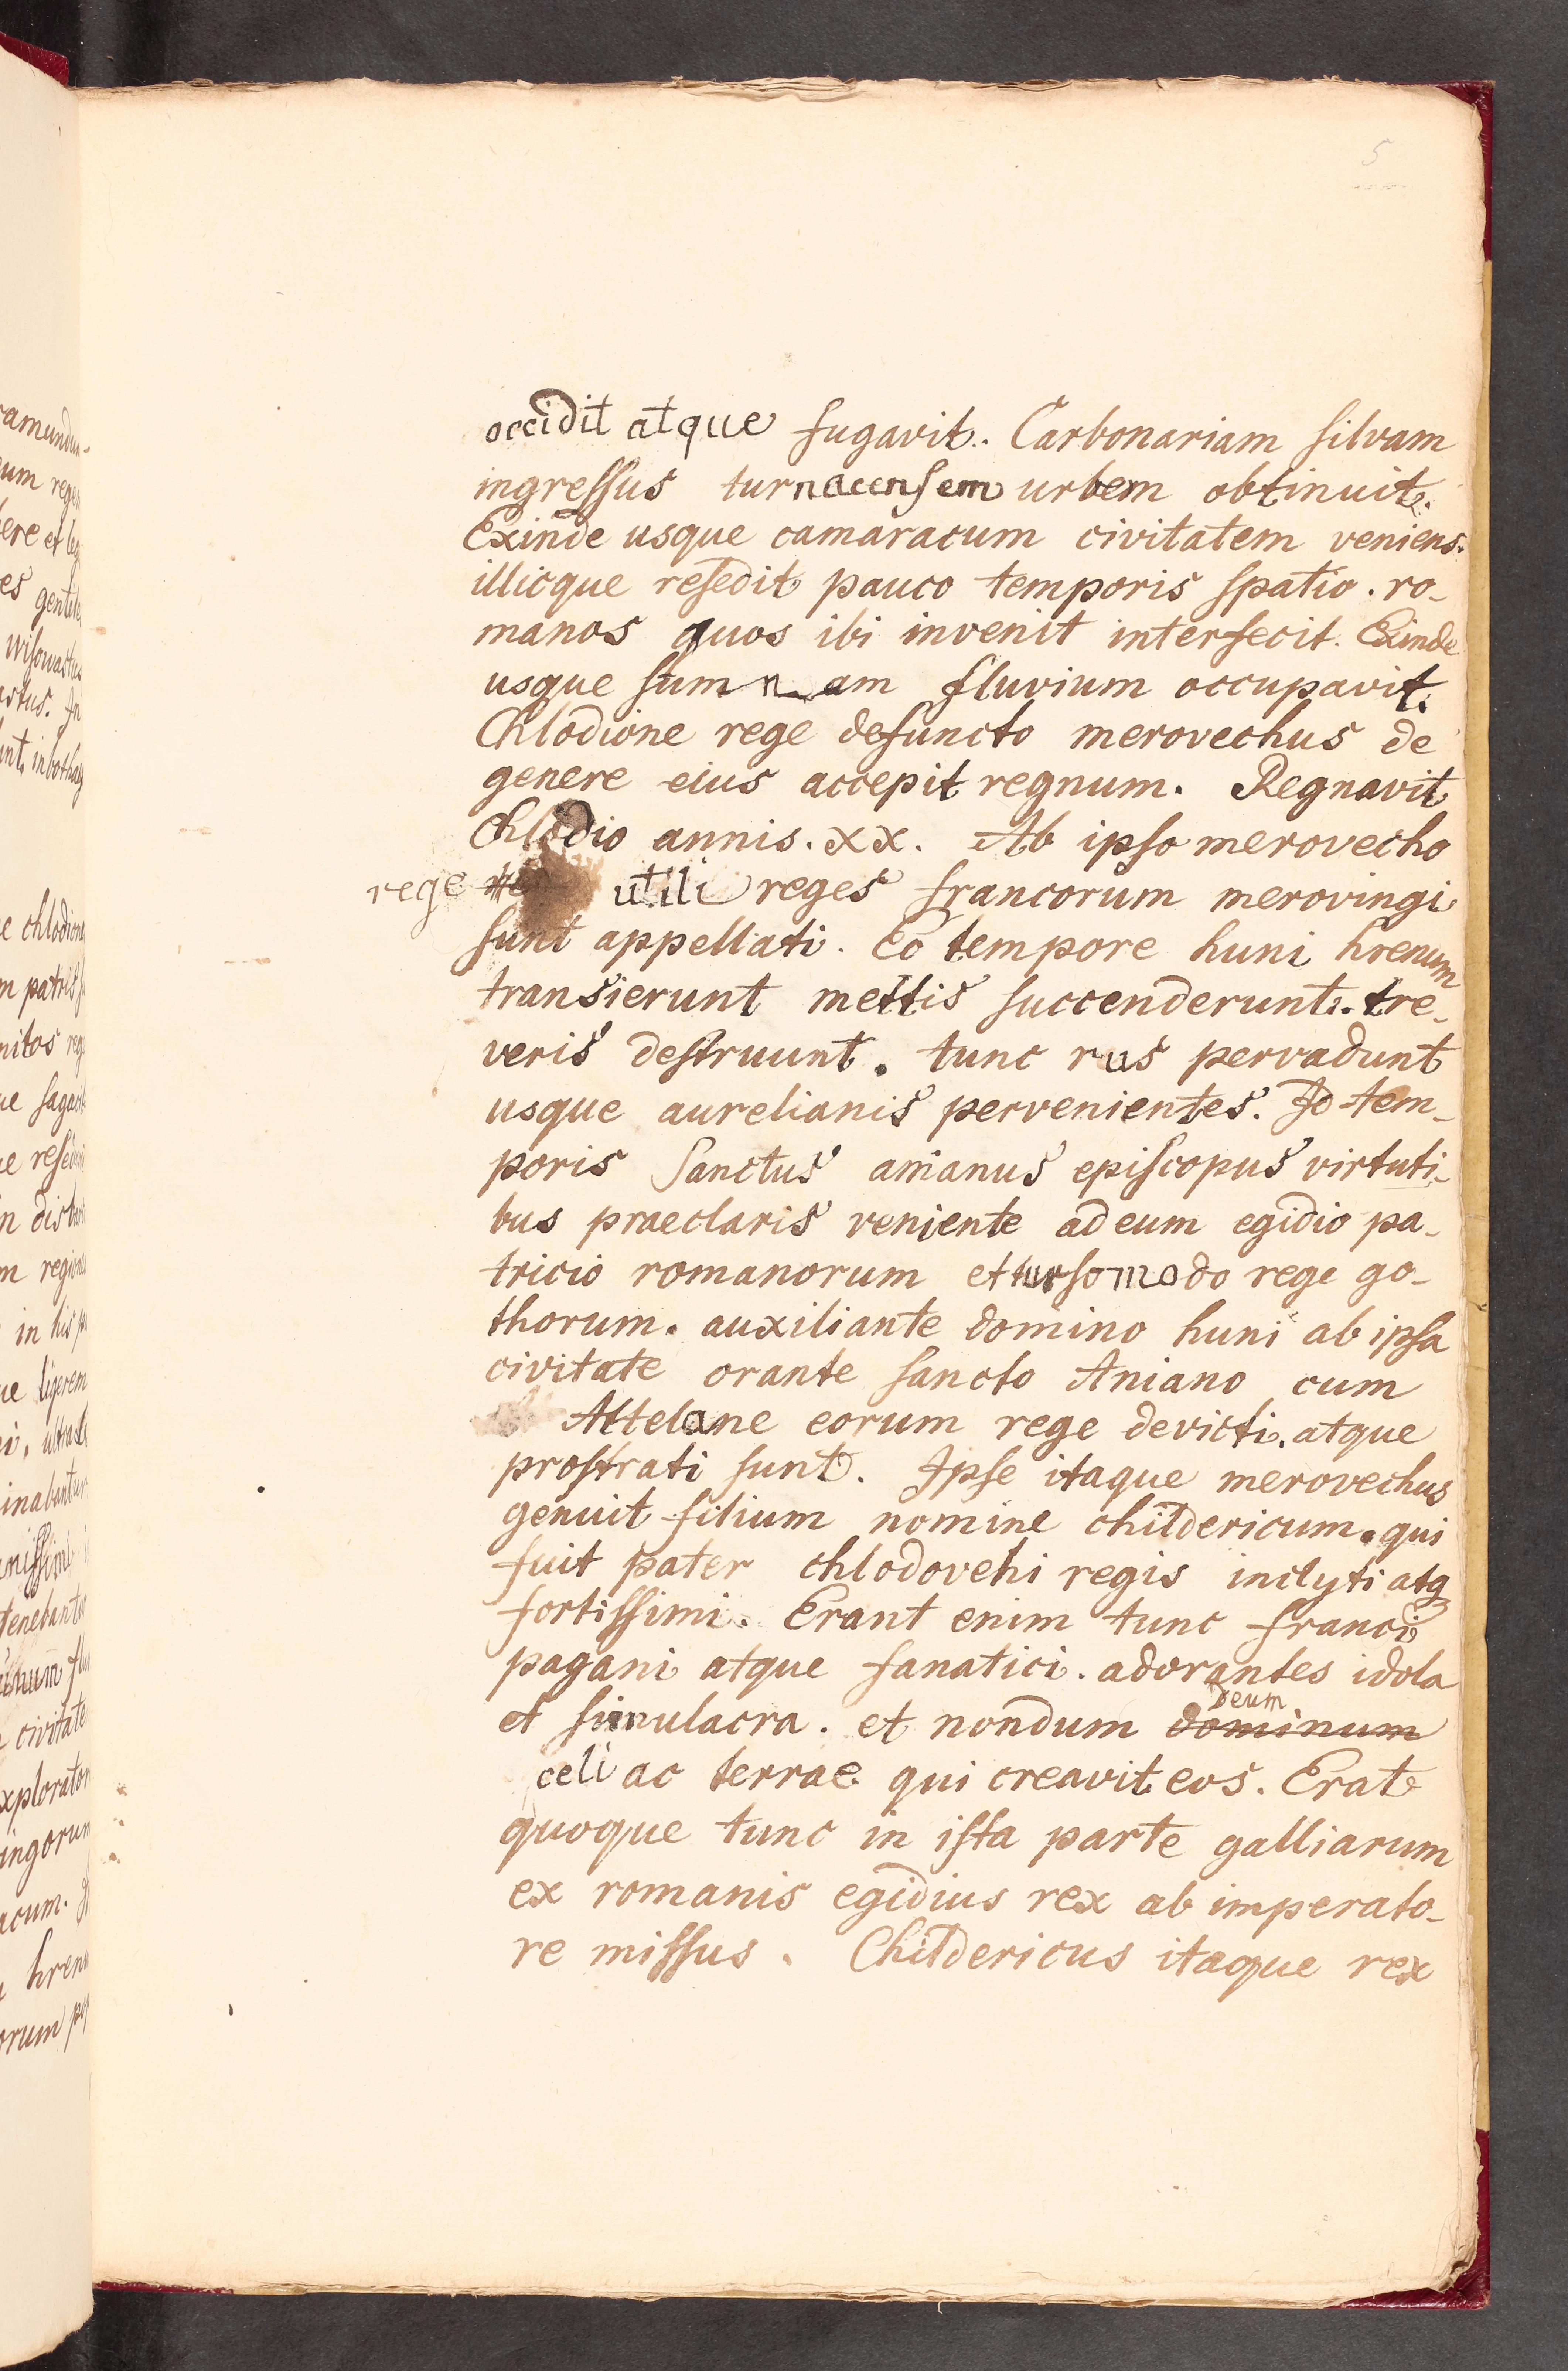 5
occidit atque fugavit. Carbonariam silvam
ingressus turnacensem urbem obtinuit.
Exinde usque camaracum civitatem veniens.
illicque resedit pauco temporis spatio. ro-
manos quos ibi invenit interfecit. Exinde
usque summam fluvium occupavit.
Chlodione rege defuncto merovechus de
genere eius accepit regnum. Regnavit
Chlodio annis. xx. Ab ipso merovecho
rege utili reges francorum merovingi
sunt appellati. Eo tempore huni hrenum
transierunt mettis succenderunt. tre-
veris destruunt. tunc rus pervadunt
usque aurelianis pervenientes. Id tem-
poris Sanctus anianus episcopus virtuti-
bus praeclaris veniente ad eum egidio pa-
tricio romanorum et tursomodo rege go-
thorum. auxiliante domino huni ab ipsa
civitate orante sancto Aniano cum
Attelane eorum rege devicti. atque
prostrati sunt. Ipse itaque merovechus
genuit filium nomine childericum. qui
fuit pater chlodovehi regis inclyti atq
fortissimi. Erant enim tunc franci
pagani atque fanatici. adorantes idola
Deum
et simulacra. et nondum dominum
celi ac terrae qui creavit eos. Erat
quoque tunc in ista parte galliarum
ex romanis egidius rex ab imperato-
re missus. Childericus itaque rex